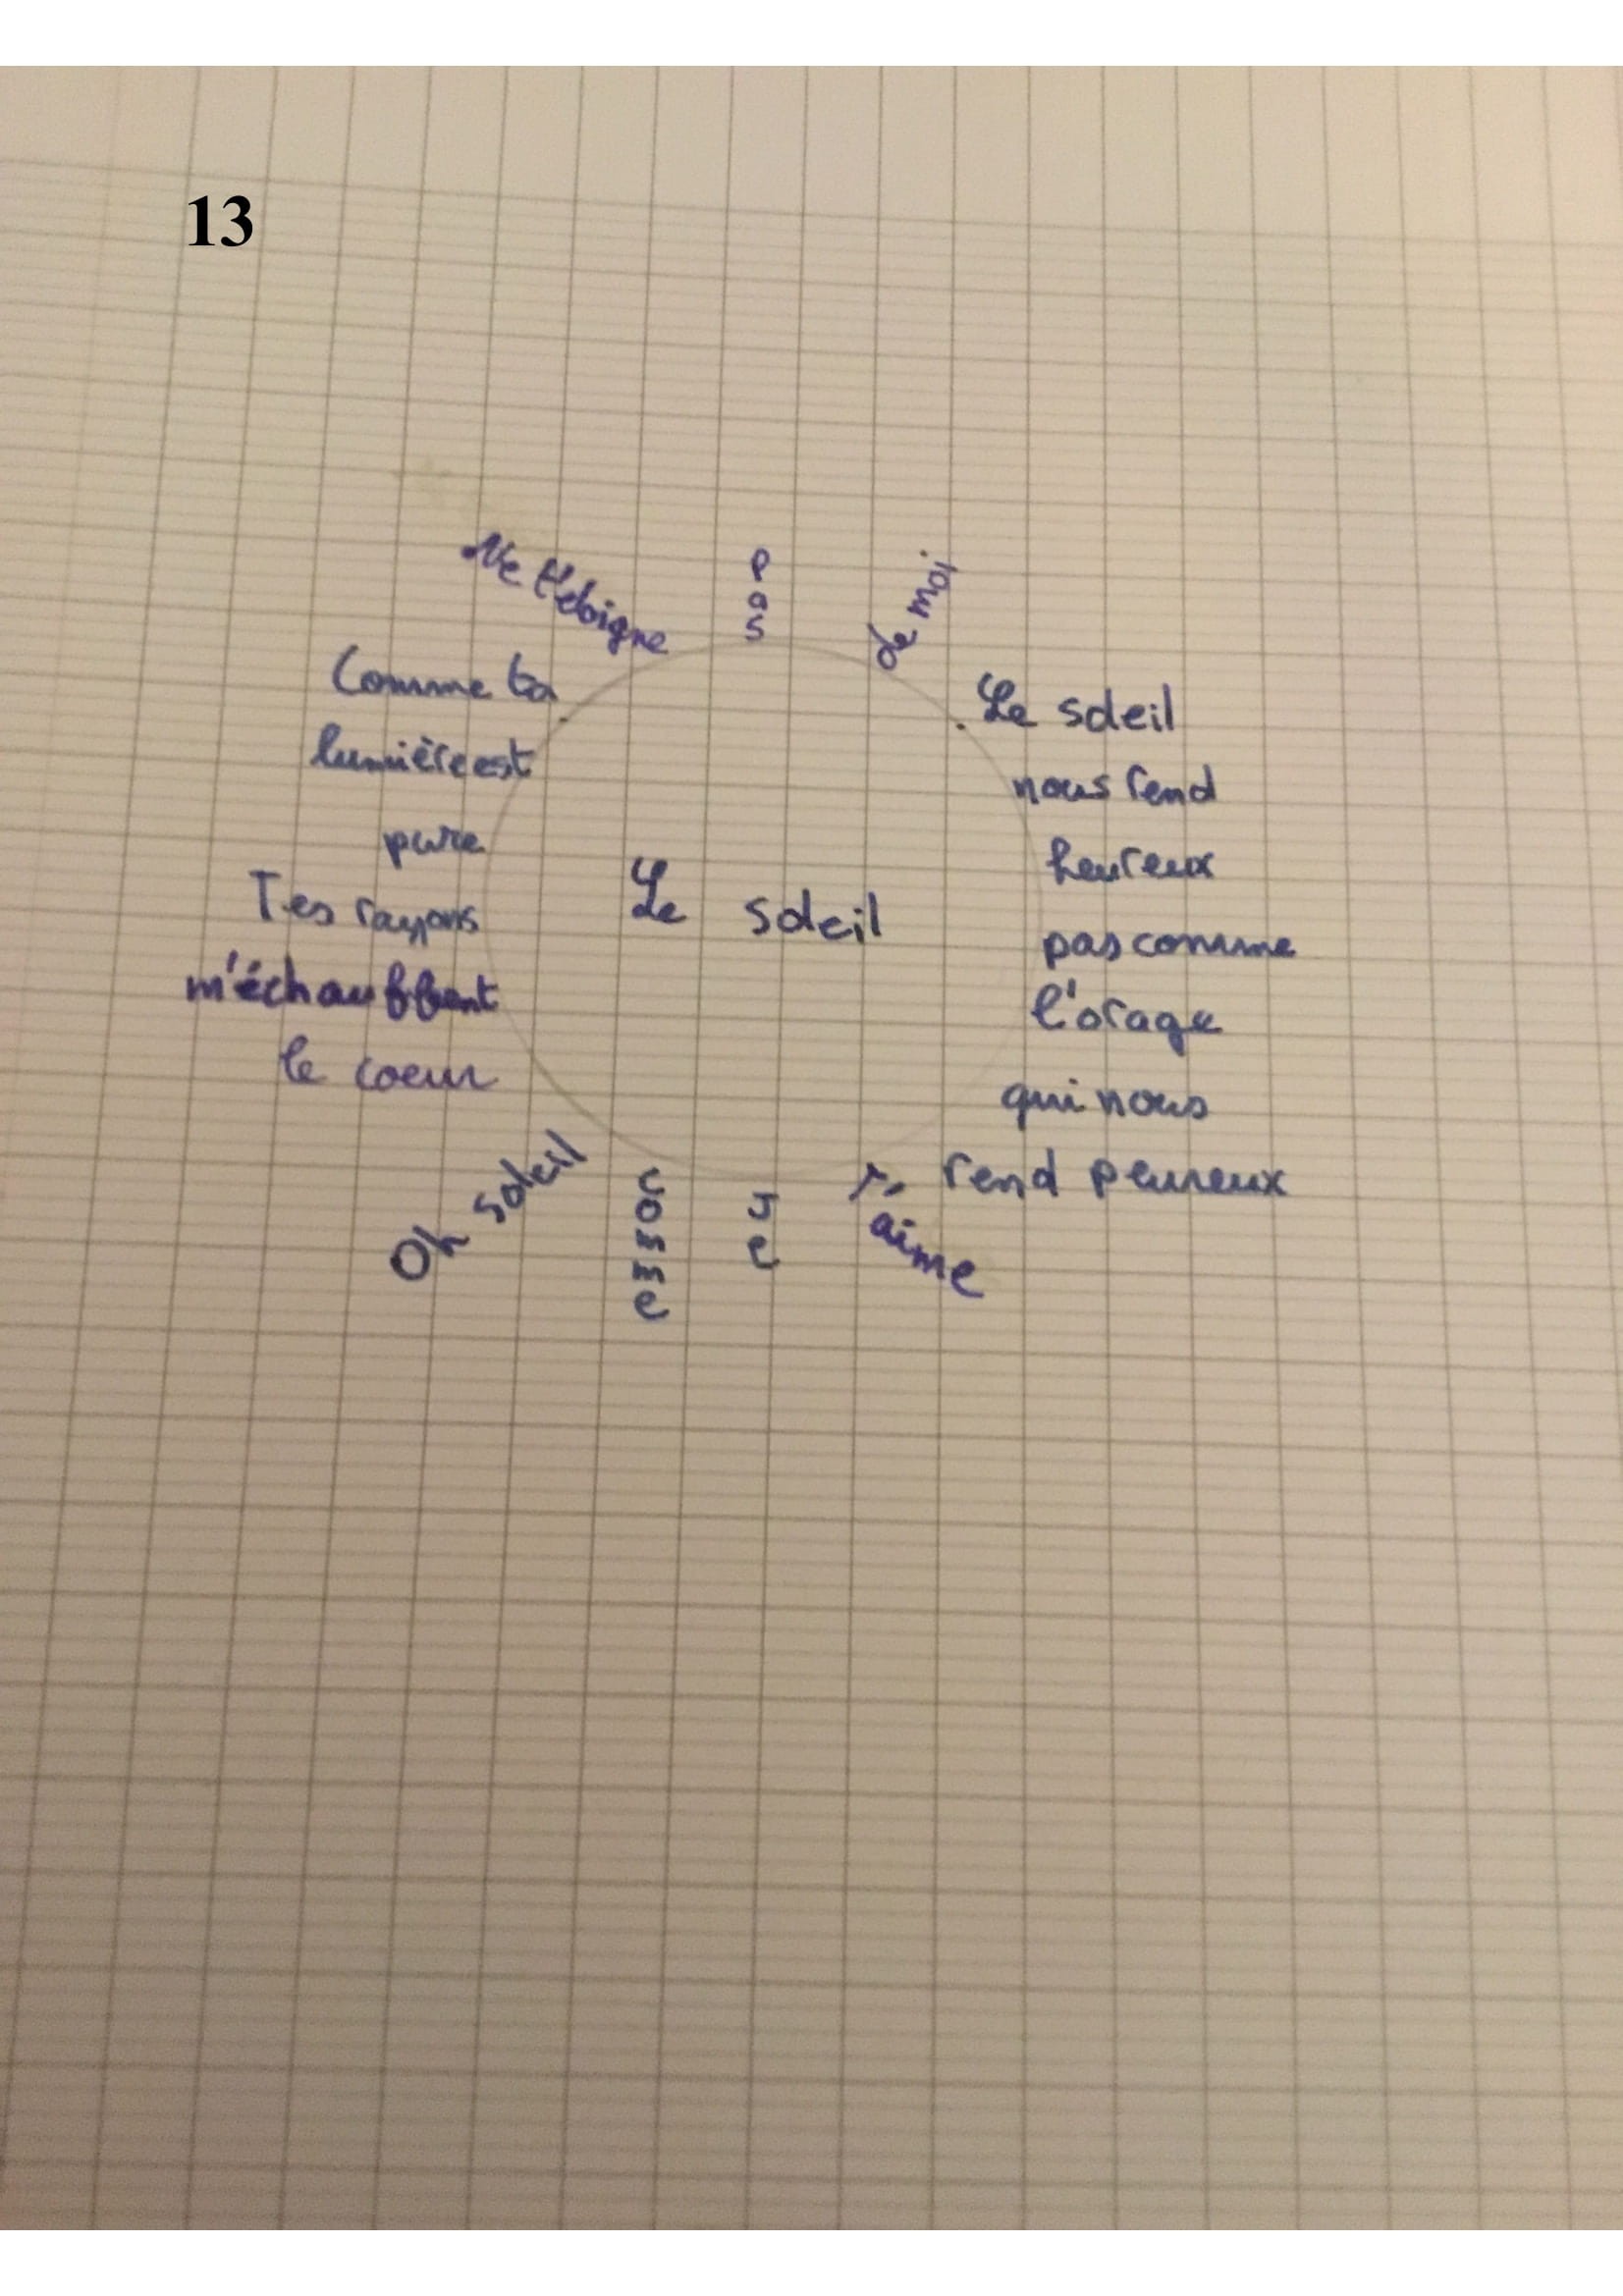 13
Ne t'éloigne
Pas
de moi
Le soleil
nous rend
heureux
pas comme
l'orage
qui nous
rend peureux
Comme ta
lumière est
pure
Tes rayons
m'échauffent
le coeur
Le soleil
Oh soleil
comme
Je
T'aime